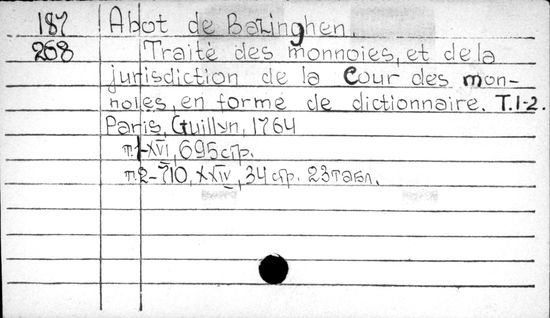 187 Abot de Bazinghen.
268 Traité des monnoies, et de la
jurisdiction de la Cour des mon-
noies, en forme de dictionnaire. T.1-2.
Paris, Guillyn, 1764
т.1-XVI, 695 стр.
т.2-710, XXIV, 34 стр. 23 табл.